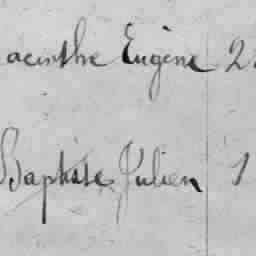 acinthe Eugène 2
Baptiste Julien 1